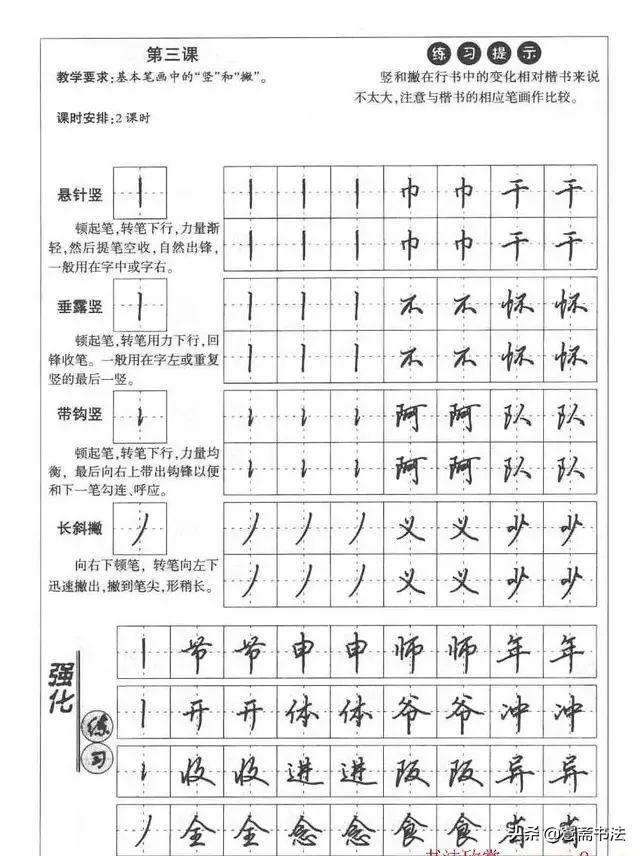 第三课
练习提示
教学要求:基本笔画中的“竖”和“撇”。
竖和撇在行书中的变化相对楷书来说
不太大,注意与楷书的相应笔画作比较。
课时安排:2课时
悬针竖 丨 丨 丨 丨 巾 巾 干 干
丨 丨 丨 巾 巾 干 干
顿起笔,转笔下行,力量渐
轻,然后提笔空收,自然出锋,
一般用在字中或字右。
垂露竖 丨 丨 丨 丨 不 不 怀 怀
丨 丨 丨 不 不 怀 怀
顿起笔,转笔用力下行,回
锋收笔。一般用在字左或重复
竖的最后一竖。
带钩竖 阿 阿 队 队
阿 阿 队 队
顿起笔,转笔下行,力量均
衡,最后向右上带出钩锋以便
和下一笔勾连、呼应。
长斜撇 丿 丿 丿 丿 义 义 少 少
丿 丿 丿 义 义 少 少
向右下顿笔,转笔向左下
迅速撇出,撇到笔尖,形稍长。
强化
练习
丨 节 节 申 申 师 师 年 年
丨 开 开 体 体 爷 爷 冲 冲
收 收 进 进 阪 阪 异 异
丿 全 全 念 念 食 食 当 当
书法欣赏